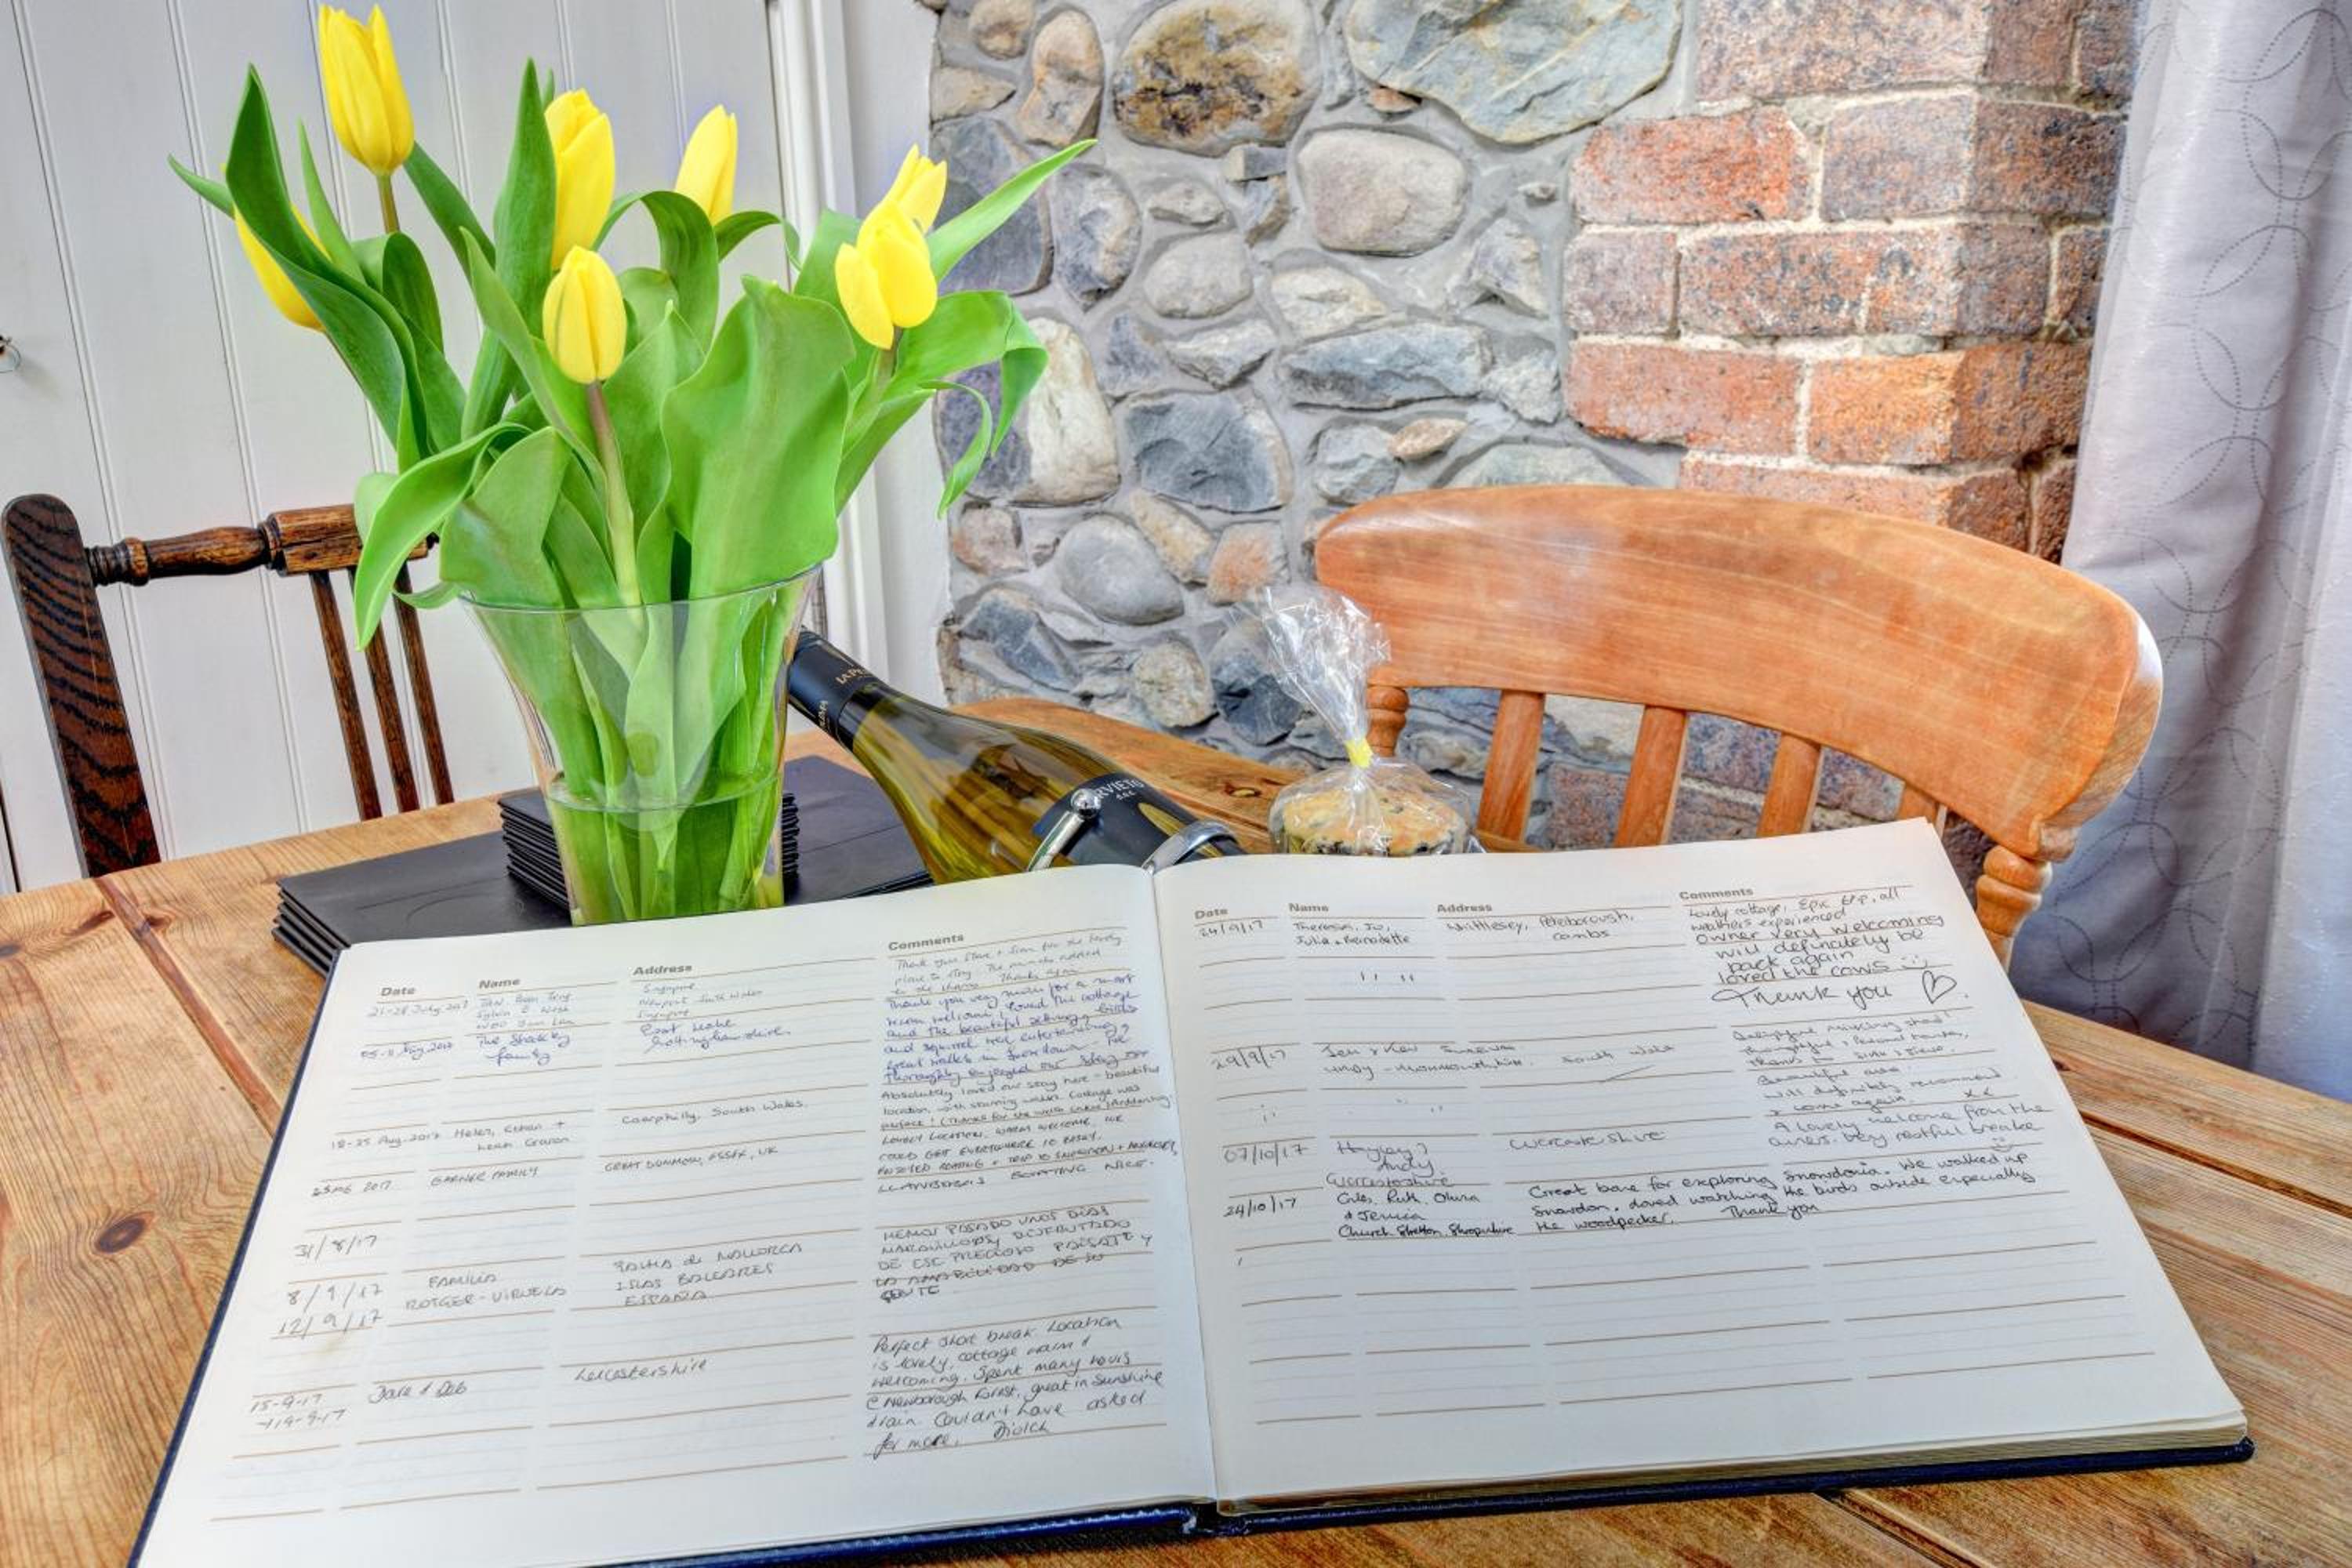 IAPR
ORVIETO
Date Name Address Comments
21-28 July 2017 Singapore Thank you Steve + Sian for the lovely
Newport South Wales place to stay. The
Singapore Thanks again
05-11 Aug 2017 The family East Leake Thank you very much for a most
Nottinghamshire warm welcome! Loved the cottage
and the beautiful setting, birds
and squirrel tree entertaining,
great walks in Snowdonia. We
thoroughly enjoyed our stay
Absolutely loved our stay here - beautiful
18-25 Aug 2017 Helen, Ethan + Caerphilly, South Wales. location with stunning views. Cottage was
Leah perfect! (Thanks for the welsh cakes
25 Aug 2017 GARNER FAMILY GREAT DUNMOW, ESSEX, UK LOVELY LOCATION, WARM WELCOME, WE
COULD GET EVERYWHERE SO EASILY.
ENJOYED + TRIP TO SNOWDON + ANGLESEY,
LLANBERIS BOATING NICE.
31/8/17
8/9/17 FAMILIA PALMA de MALLORCA HEMOS PASADO UNOS DIAS
12/9/17 ROTGER-VIRUELA ISLAS BALEARES MARAVILLOSOS DISFRUTADO
ESPAÑA DE ESE PRECIOSO PAISAJE Y
LA AMABILIDAD DE SU
GENTE
15-9-17 Dave & Deb Leicestershire Perfect short break. Location
→19-9-17 is lovely, cottage warm &
welcoming. Spent many hours
@ Newborough Forest, great in sunshine
& rain. Couldn't have asked
for more. Diolch
Date Name Address Comments
24/9/17 Theresa, Jo, Whittlesey, Peterborough, Lovely cottage, Epic trip, all
Julia + Bernadette Cambs weathers experienced
owner very welcoming
" " will definately be
back again
loved the cows
Thank you ♡.
29/9/17 Jen & Kev South Wales Delightful
thoughtful & personal touches,
Thanks to
Beautiful area.
will definitely recommend
& come again. xx
07/10/17 Hayley & Worcestershire A lovely welcome from the
Andy. owners. Very restful break
Worcestershire
24/10/17 Giles, Ruth, Olivia Great base for exploring Snowdonia. We walked up
& Jemma Snowdon. Loved watching the birds outside especially
Church Stretton Shropshire the woodpecker. Thank you